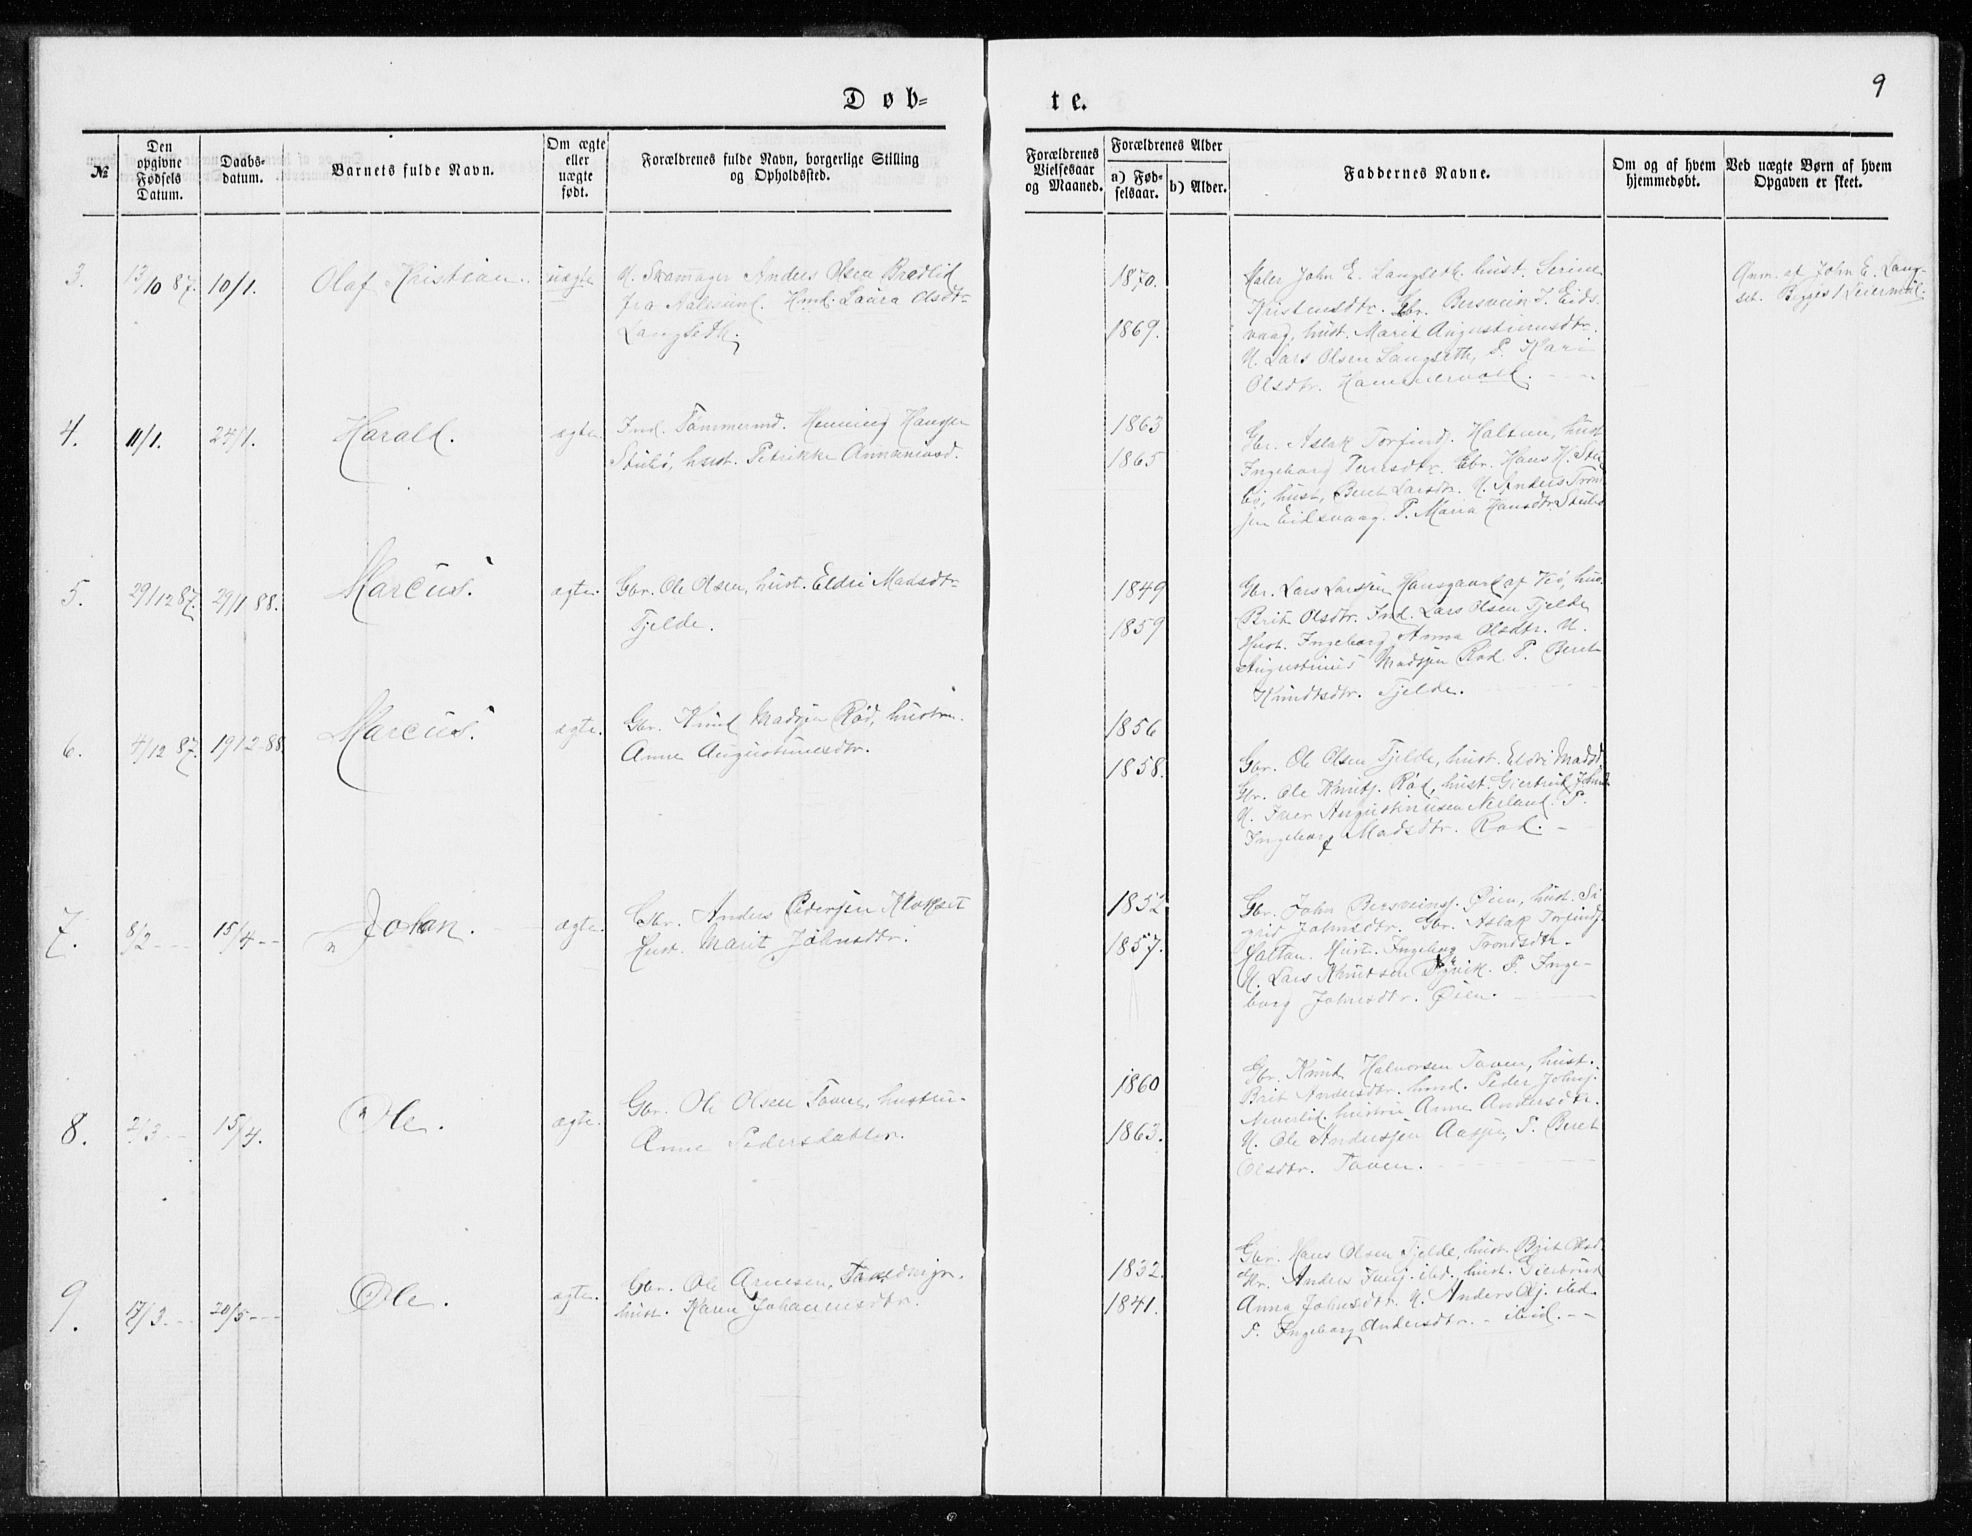 Døb=
te.
9
№
Den opgivne Fødsels Datum.
Daabs-datum.
Barnets fulde Navn.
Om ægte eller uægte født.
Forældrenes fulde Navn, borgerlige Stilling og Opholdssted.
Forældrenes Vielsesaar og Maaned.
Forældrenes Alder
a) Fød-selsaar.
b) Alder.
Faddernes Navne.
Om og af hvem hjemmedøbt.
Ved uægte Børn af hvem Opgaven er skeet.
3.
13/10 87.
10/1.
Olaf Kristian.
uægte
U. Skomager Anders Olsen Bredlid
fra Aalesund. Hmd. Laura Olsdtr.
Langseth.
1870.
1869.
Maler John E. Langseth, hust. Serine
Kristensdtr. Gbr. Bersvein J. Eids-
vaag, hust. Marit Augustinusdtr.
U. Lars Olsen Langseth, P. Kari
Olsdtr. Hammervold.
Anm. af John E. Lang-
set. Begges 1 Leiermål.
4.
11/1.
24/1.
Harald.
ægte.
Ind. Tømmermd. Henning Hansen
Stubø, hust. Petrikke Annaniasd.
1863
1865
Gbr. Aslak Torfinds. Haltan, hust
Ingeborg Tronsdtr. Gbr. Hans H. Stu-
bø, hust, Beret Larsdtr. U. Anders Tron-
sen Eidsvaag. P. Maria Hansdtr. Stubø
5.
29/12 87.
29/1 88.
Marcus.
ægte.
Gbr. Ole Olsen, hust. Eldri Madsdtr
Tjelde.
1849
1859
Gbr. Lars Larssen Hansgaard af Veø, hus.
Brit Olsdtr. Ind. Lars Olsen Tjelde
Hust. Ingeborg Anna Olsdtr. U.
Augustinus Madssen Rød. P. Beret
Knudtsdtr. Tjelde.
6.
4/12 87.
19/2-88.
Marcus.
ægte.
Gbr. Knud Madssen Rød, hustru.
Anne Augustinusdtr.
1856
1858.
Gbr. Ole Olsen Tjelde, hust. Eldri Madsd.
Gbr. Ole Knuts. Rød, hust. Gjertrud
U. Iver Augustinusen Nerland. P.
Ingeborg Madsdtr. Rød.
7.
8/2
15/4
Johan.
ægte.
Gbr. Anders Pedersen Klokset
Hust. Marit Johnsdtr.
1852
1857.
Gbr. John Bersveins. Øien, hust. Si-
grid Johnsdtr. Gbr. Aslak Torfinds.
Haltan. Hust. Ingeborg Trondsdtr.
U. Lars Knudsen P. Inge-
borg Johnsdtr. Øien.
8.
2/3
15/4.
Ole.
ægte.
Gbr. Ole Olsen Toven, hustru.
Anne Pedersdatter.
1860
1863.
Gbr. Knut Halvorsen Toven, hust.
Brit Andersdtr. hmd. Peder Johns.
Neverlid, hustru Anne Andersdtr.
U. Ole Anderssen Aasen, P. Beret
Olsdtr. Toven.
9.
17/3
20/5
Ole.
ægte.
Gbr. Ole Arnesen,
hust. Karen Johannesdtr.
1832.
1841.
Gbr. Hans Olsen Tjelde, hust. Brit Olsd
Gbr. Anders Ivers. ibd. hust. Gjertrud
Anna Johnsdtr. U. Anders Ols. ibd.
P. Ingeborg Andersdtr. - ibid.